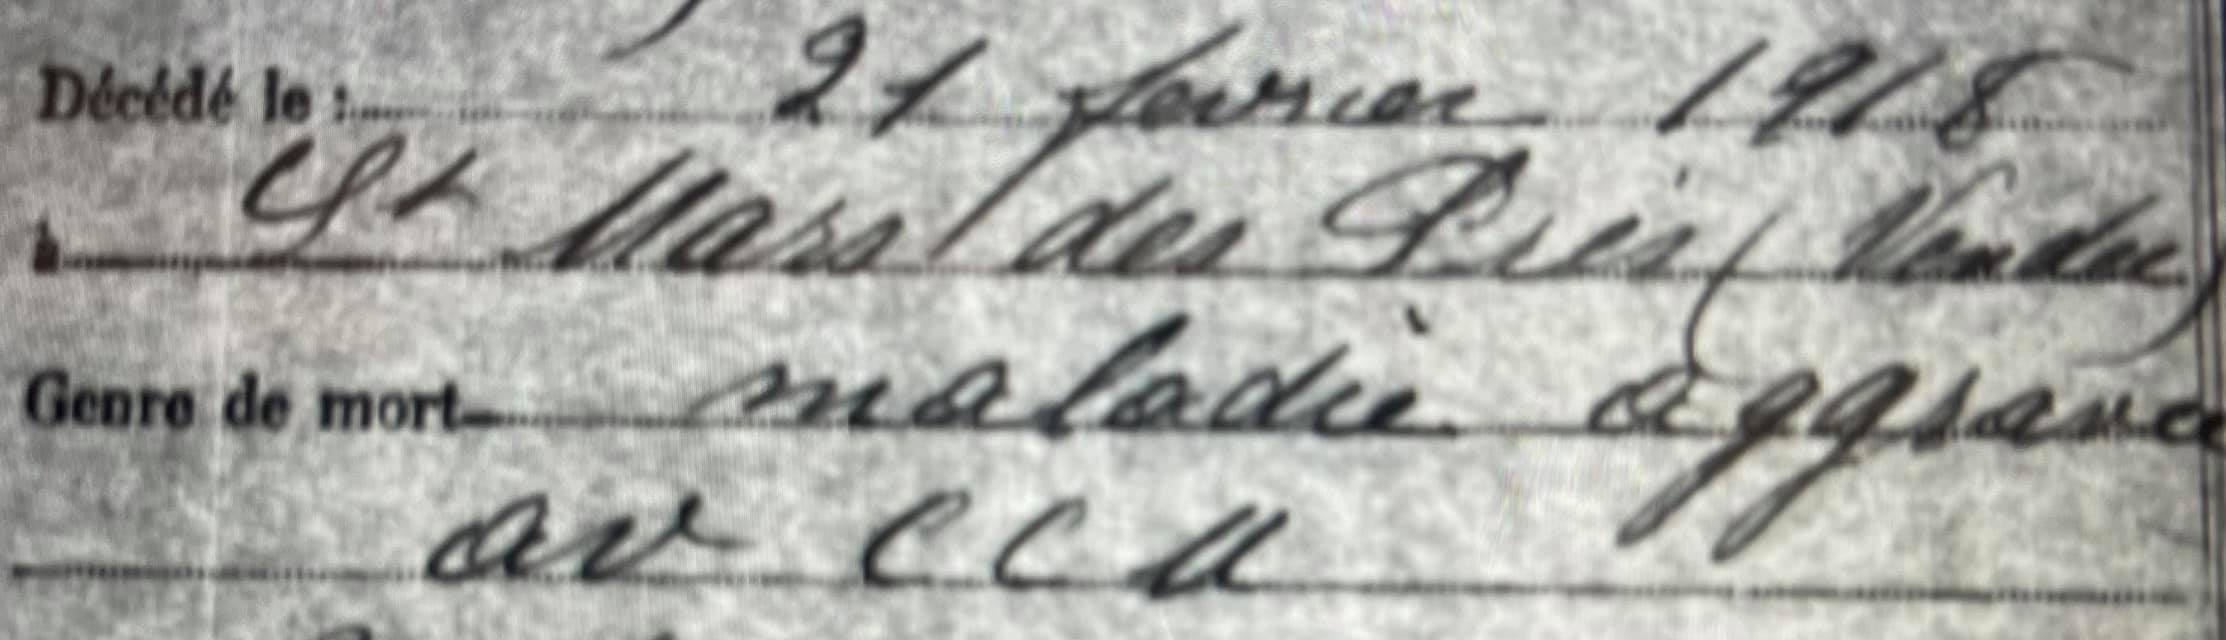 Décédé le : 21 fevrier 1918
à St Mars des Prés (Vendée)
Genre de mort maladie aggravé
av CCM